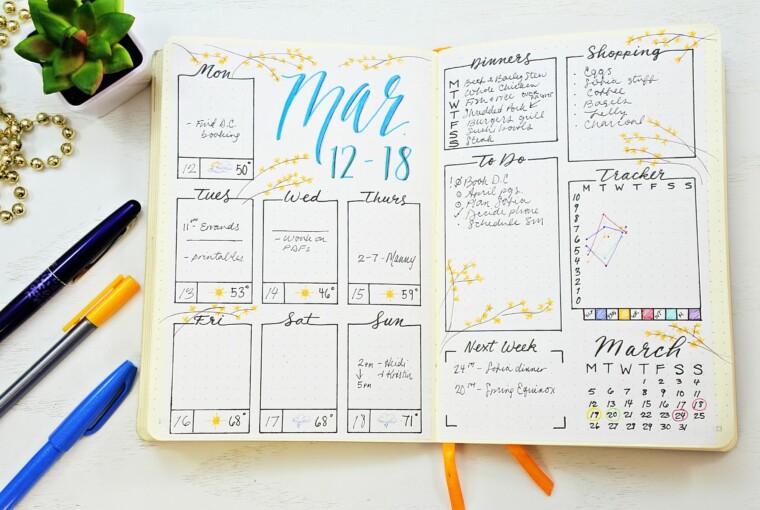 Mon
- Find D.C.
booking
12 50°
Mar.
12-18
Tues
11- Errands
- printables
13 53°
Wed
- Work on
PDFs
14 46°
Thurs
2-7 - Nanny
15 59°
Fri
16 68°
Sat
17 68°
Sun
2pm - Heidi
5pm
18 71°
Dinners
M Beef & Barley Stew
T Whole Chicken
W Fish or rice
T Shredded Pork
F Burgers grill
S Sushi bowls
S Steak
Shopping
- Eggs
- Sofia stuff
- Coffee
- Bagels
- Jelly
- Charcoal
To Do
Book D.C
April pgs.
Plan Sofia
Decide phone
- Schedule SM
Tracker
M T W T F S S
10
9
8
7
6
5
4
3
2
1
0
Next Week
24TH - Sofia dinner
20TH - Spring Equinox
March
M T W T F S S
1 2 3 4
5 6 7 8 9 10 11
12 13 14 15 16 17 18
19 20 21 22 23 24 25
26 27 28 29 30 31